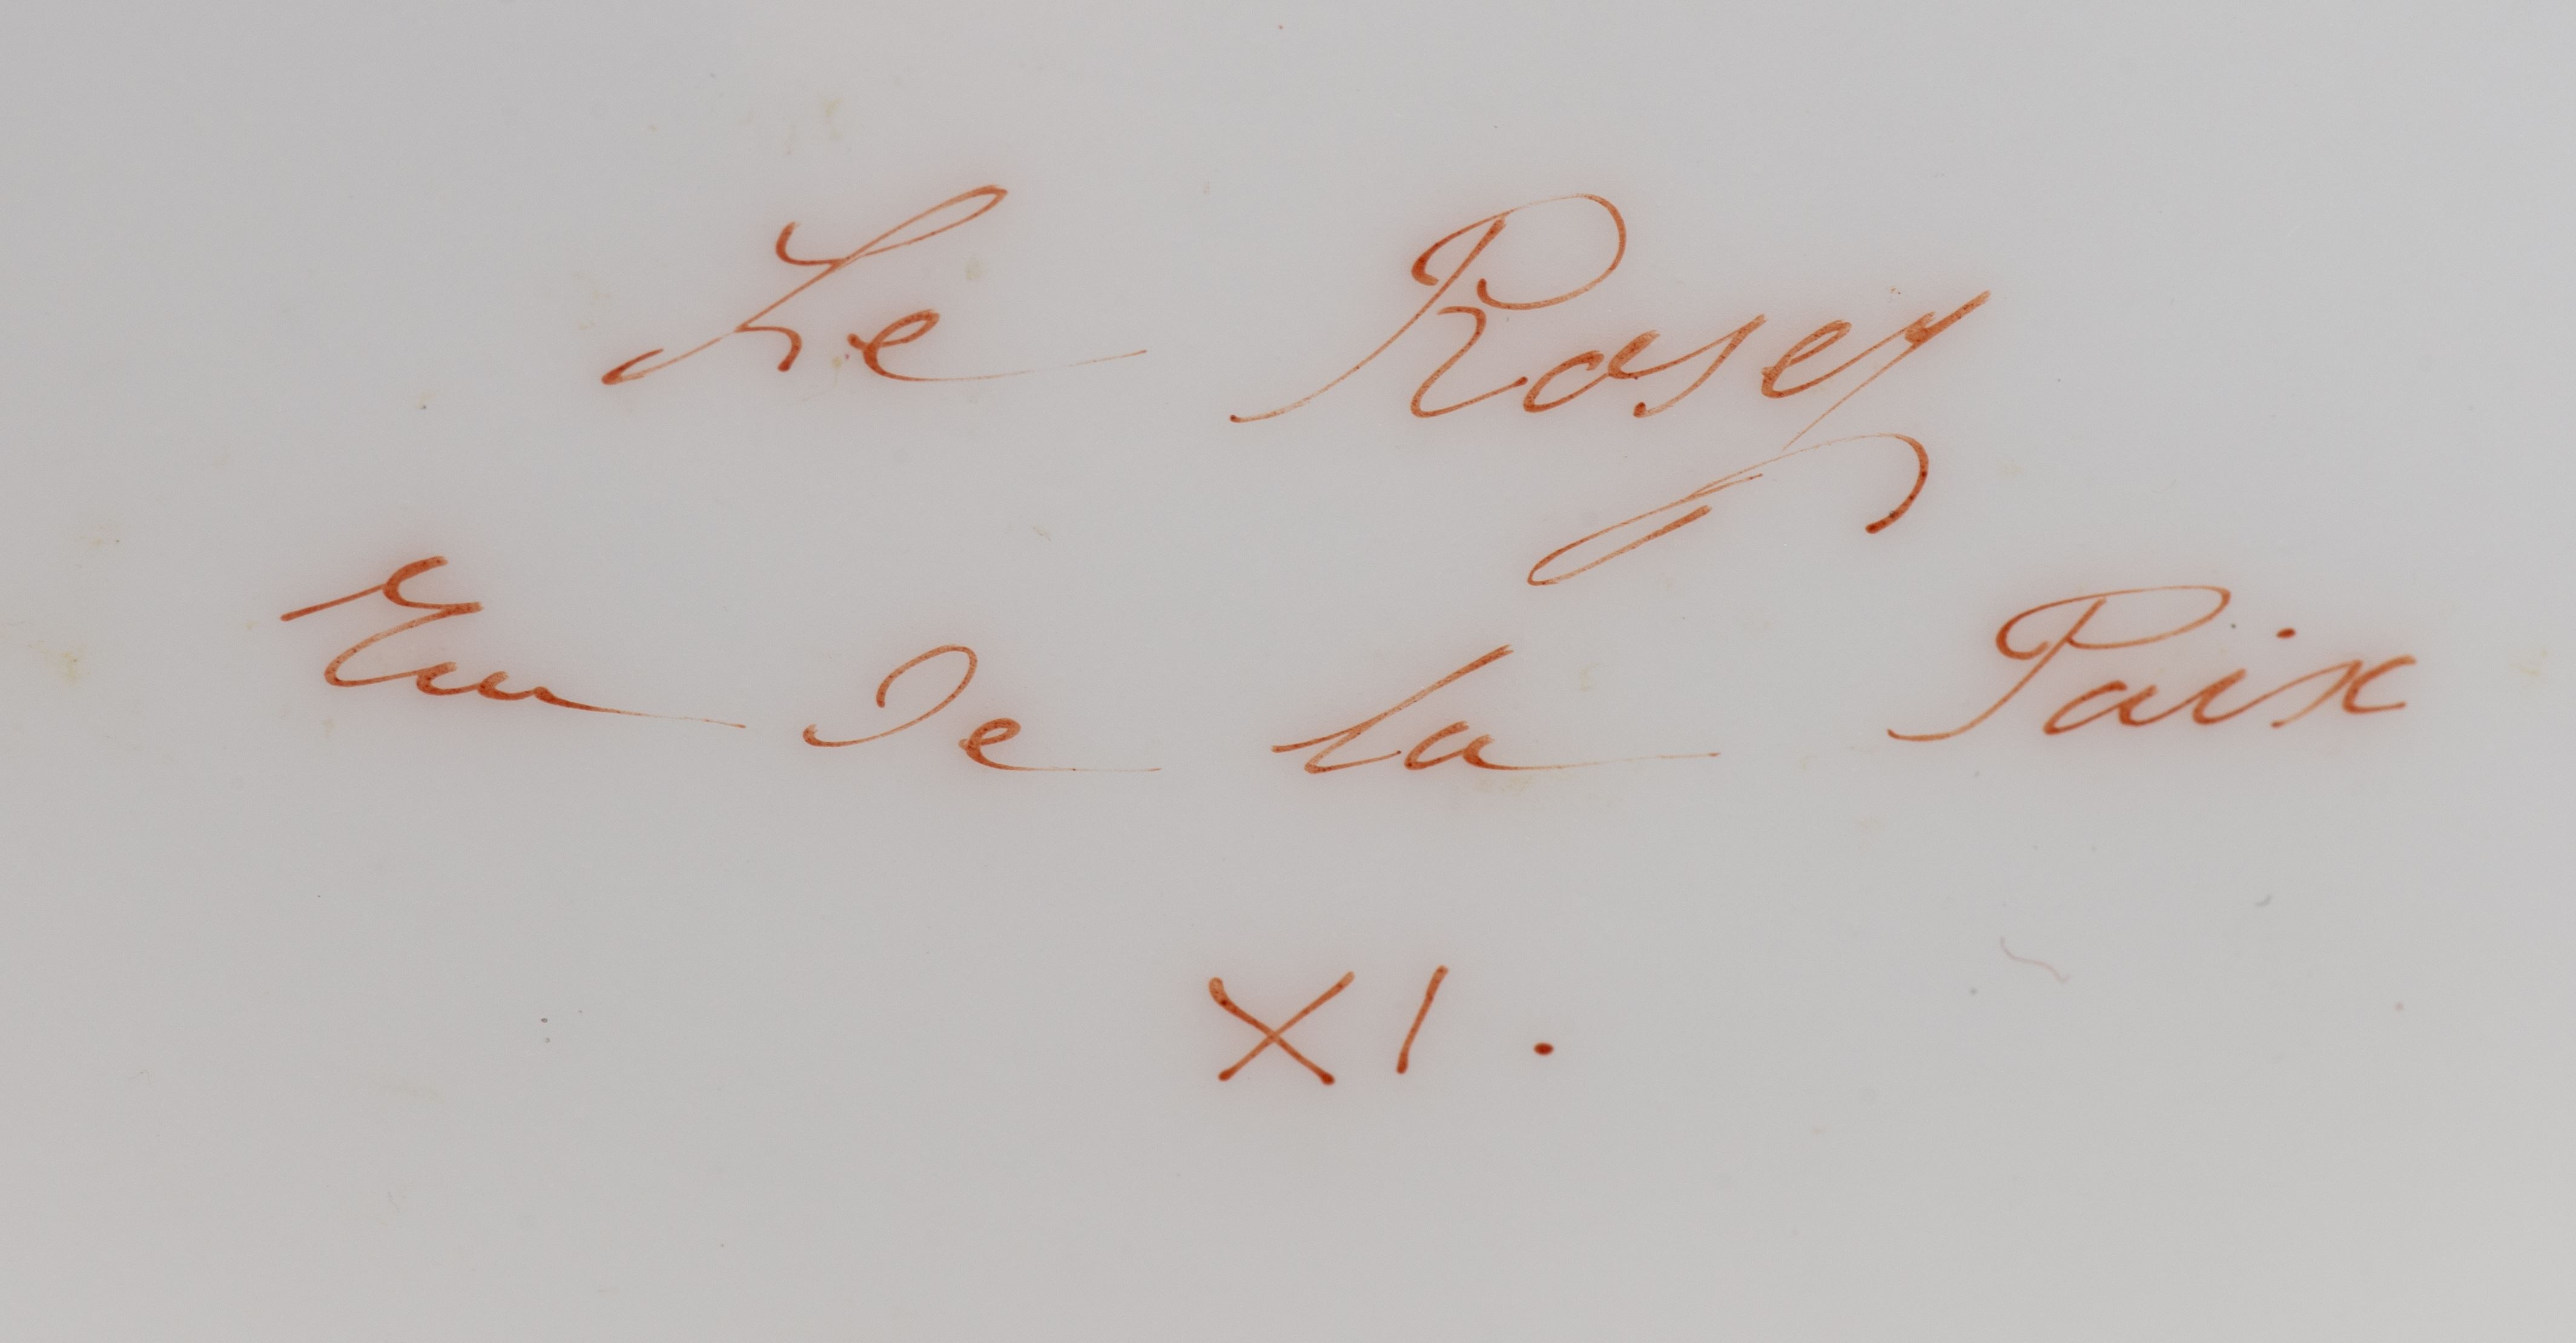 Le Rosey
Rue De la Paix
XI.